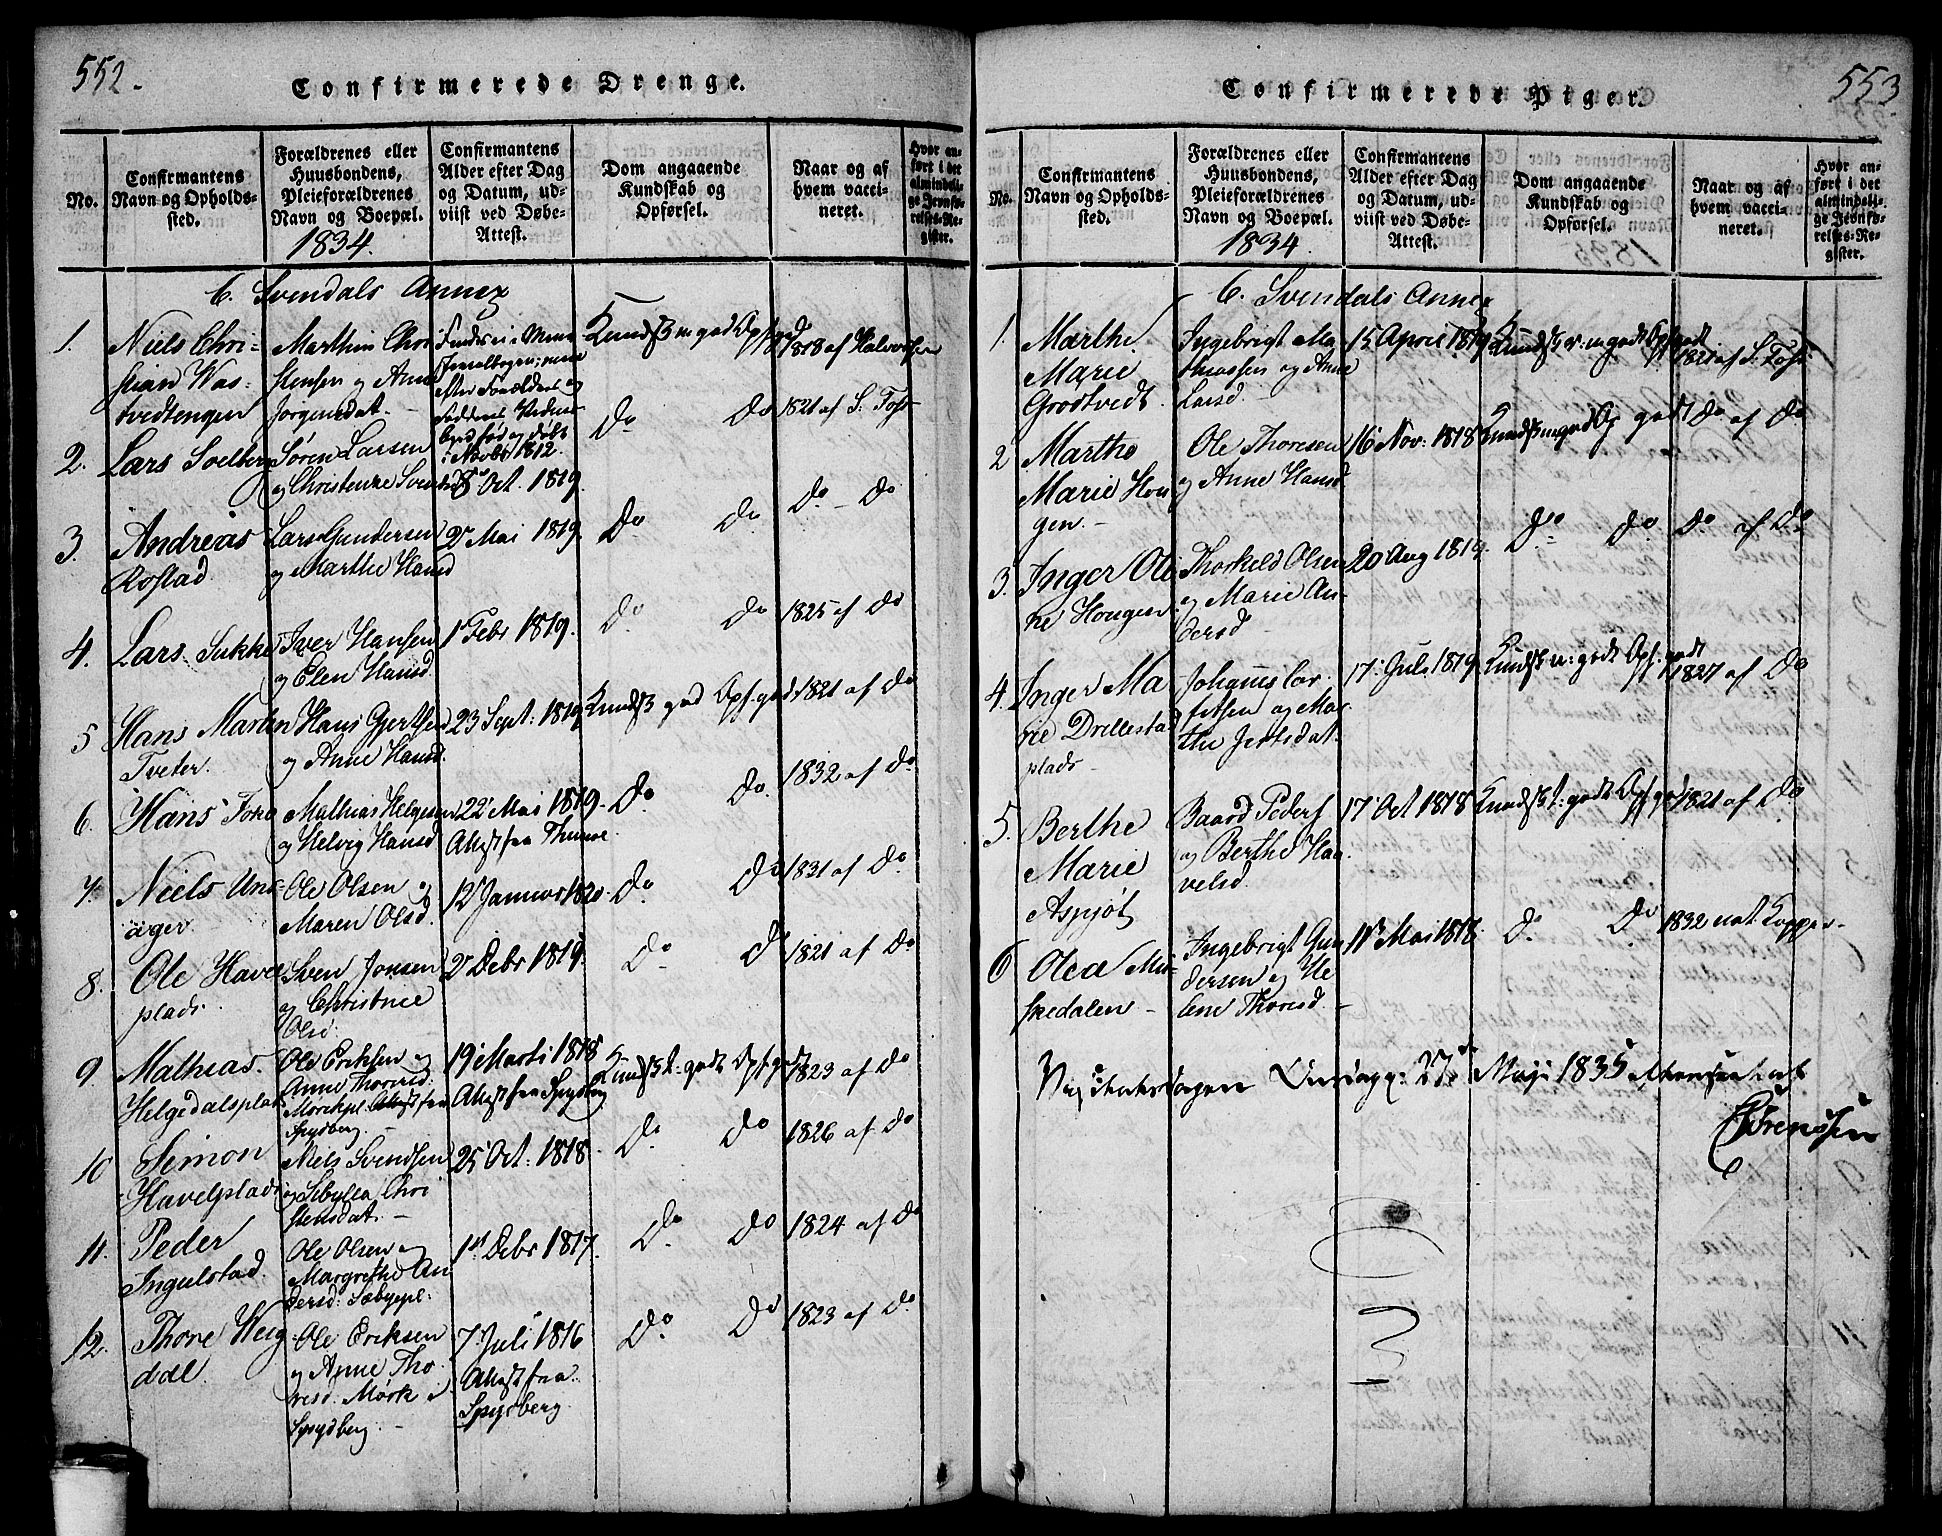 552.
Confirmerede Drenge.
No.
Confirmantens
Navn og Opholds-
sted.
Forældrenes eller
Huusbondens,
Pleieforældrenes
Navn og Boepæl.
1834.
Confirmantens
Alder efter Dag
og Datum, ud-
viist ved Døbe-
Attest.
Dom angaaende
Kundskab og
Opførsel.
Naar og af
hvem vacci-
neret.
Hvor an-
ført i det
almindeli-
ge Jevnfø-
relses-Re-
gister.
6. Svendals Annex
1.
Niels Chri-
stian Was-
tvedtengen
Marthin Chri
stensen og Anne
Jörgensdat.
Findes ei i Mini
sterialbogen; men
efter Forældres og
Fadderes Vidnes
byrd fød og døbt
i Novbr 1812.
Kundsk m god Opf god
1818 af Halvorsen
2.
Lars Soelberg
Søren Larsen
og Christenze Svendsd
8de Oct. 1819.
Do Do
1821 af S. Tofte
3.
Andreas
Rostad
Lars Gundersen
og Marthe Hansd
2de Mai 1819.
Do Do
Do - Do
4.
Lars Sukke
Iver Hansen
og Elen Hansd.
1 Febr 1819.
Do Do
1825 af Do
5
Hans Martin
Tveter.
Hans Gjertsen
og Anne Hansd.
23 Sept: 1819
Kundsk god Opf. god
1821 af Do
6.
Hans
Mathias Helgesen
og Helvig Hansd
22 Mai 1819.
Attest fra Thune.
Do Do.
1832 af Do
7.
Niels Uns-
ager.
Ole Olsen og
Maren Olsd.
12 Januar 1820.
Do Do
1821 af Do
8.
Ole Havel
plads.
Sven Jonsen
og Christine
Olsd.
2 Debr 1819.
Do Do
1821 af Do
9
Mathias.
Helgedalsplads
Ole Eriksen og
Anne Thoresd:
Morkpl. Attest fra
Spydberg.
19 Marti 1818
Attest fra Spydberg
Kundsk t: godt Opf. godt
1823 af Do
10
Simon
Havelplads
Niels Svendsen
og Sibylla Chri
stensdat.
25 Oct: 1818.
Do Do
1826 af Do
11.
Peder
Ingulstad.
Ole Olsen og
Margrethe An
dersd: Sæbyepl:
1ste Debr 1817.
Do Do
1824 af Do
12.
Thore Weig
dal.
Ole Eriksen
og Anne Tho
resd. Mørk i
Spydberg.
7 Juli 1816
Attest fra
Spydberg.
Do Do
1823 af Do
553
Confirmerede Piger.
No.
Confirmantens
Navn og Opholds-
sted.
Forældrenes eller
Huusbondens,
Pleieforældrenes
Navn og Boepæl.
1834.
Confirmantens
Alder efter Dag
og Datum, ud-
viist ved Døbe-
Attest.
Dom angaaende
Kundskab og
Opførsel.
Naar og af
hvem vacci-
neret.
Hvor an-
ført i det
almindeli-
ge Jevnfø-
relses-Re-
gister.
6. Svendals Annex
1.
Marthe
Marie
Grodtvedt.
Ingebrigt Ma
thiassen og Anne
Larsd.
15 April 1819
Kundsk m godt Opf godt
1821 af S. Tofte
2
Marthe
Marie Hou
gen.
Ole Thoresen
og Anne Hansd
16 Nov: 1818
Kundsk m god Op godt
Do af Do
3.
Inger Oli
ne Hougen
Thorkeld Olsen
og Marie An-
dersd
20 Aug 1819.
Do Do
Do af Do
4.
Inger Ma
rie Drillestad
plads
Johannes Lor
entsen og Mar
the Jertsdat.
17 Juli 1819.
Kundsk n: godt Opf: godt
1827 af Do
5.
Berthe
Marie
Baard Peders
og Berthe Haa
velsd.
17 Oct 1818
Kundsk t: godt Opf godt
1821 af Do
6
Olea Mu-
skedalen
Ingebrigt Gun
dersen og He
lene Thoresd.
11te Mai 1818.
Do Do
1832 nat. Kopper.
Visitatsdagen Onsdag: 27de Maji 1835
Sørenssen